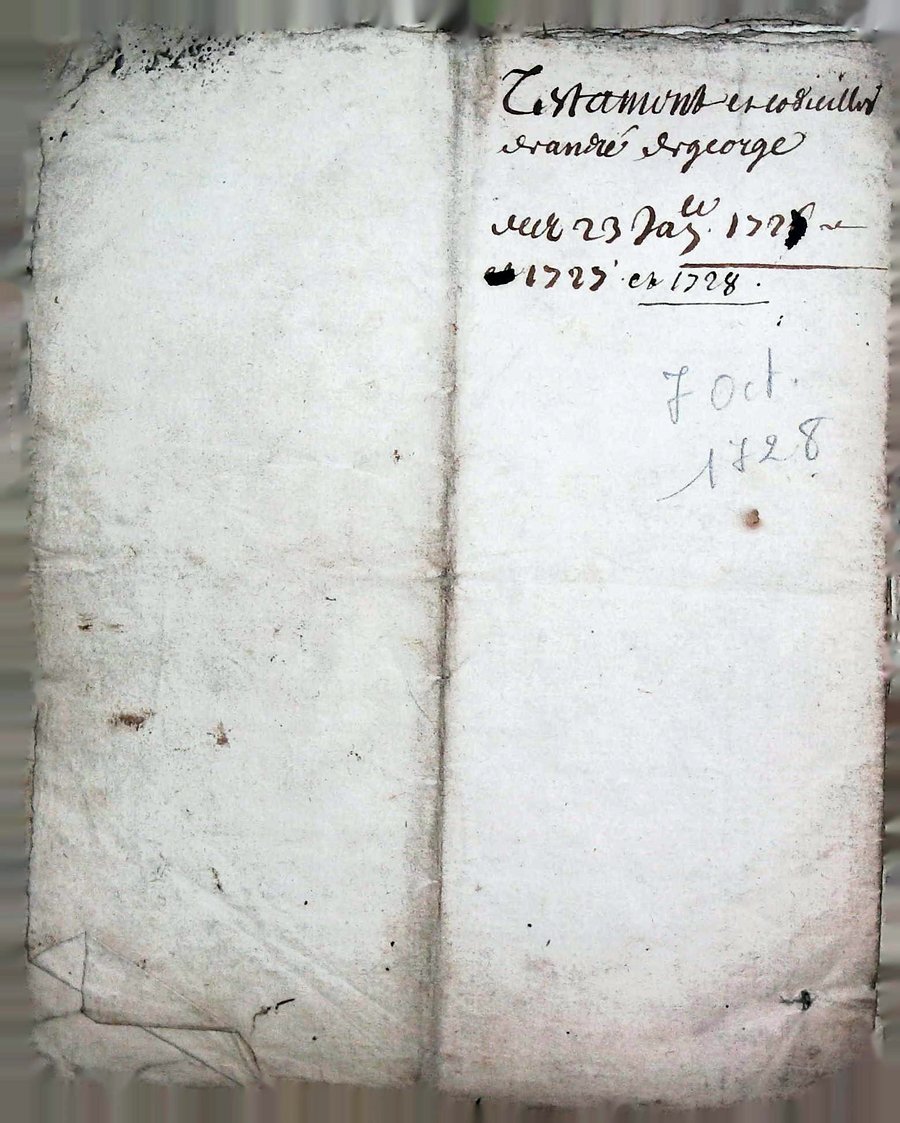 Testament et codicilles
de andré degeorge
des 23 Jan.er 172
1727 et 1728.
7 Oct.
1728